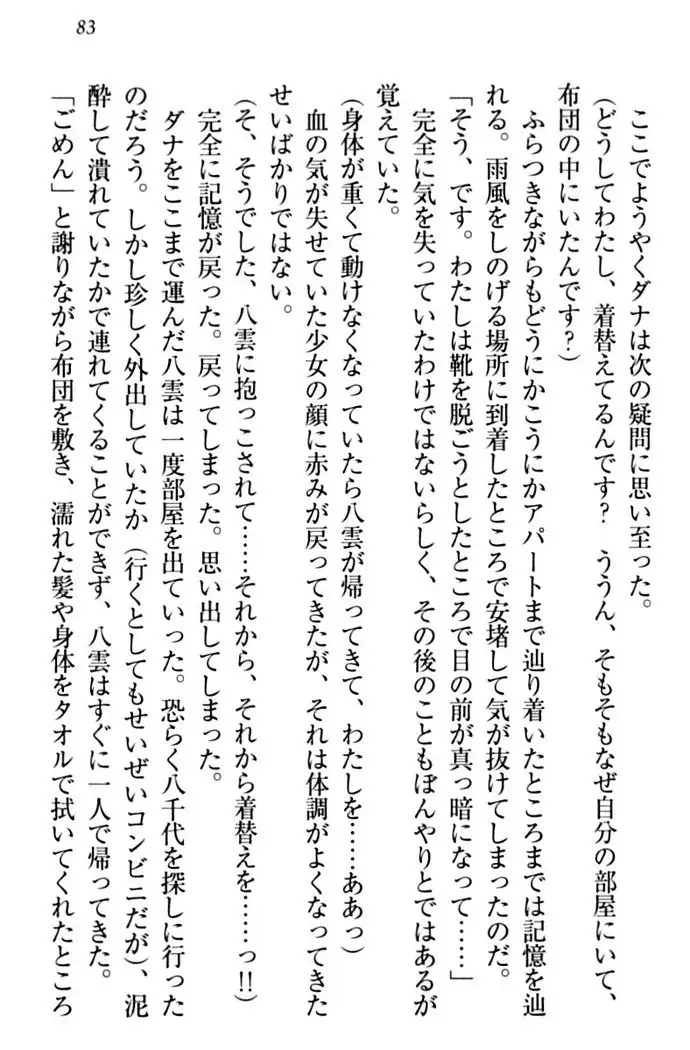 83
ここでようやくダナは次の疑問に思い至った。
（どうしてわたし、着替えてるんです？　ううん、そもそもなぜ自分の部屋にいて、
布団の中にいたんです？）
ふらつきながらもどうにかこうにかアパートまで辿り着いたところまでは記憶を辿
れる。雨風をしのげる場所に到着したところで安堵して気が抜けてしまったのだ。
「そう、です。わたしは靴を脱ごうとしたところで目の前が真っ暗になって……」
完全に気を失っていたわけではないらしく、その後のこともぼんやりとではあるが
覚えていた。
（身体が重くて動けなくなっていたら八雲が帰ってきて、わたしを……ああっ）
血の気が失せていた少女の顔に赤みが戻ってきたが、それは体調がよくなってきた
せいばかりではない。
（そ、そうでした、八雲に抱っこされて……それから、それから着替えを……っ!!）
完全に記憶が戻った。戻ってしまった。思い出してしまった。
ダナをここまで運んだ八雲は一度部屋を出ていった。恐らく八千代を探しに行った
のだろう。しかし珍しく外出していたか（行くとしてもせいぜいコンビニだが）、泥
酔して潰れていたかで連れてくることができず、八雲はすぐに一人で帰ってきた。
「ごめん」と謝りながら布団を敷き、濡れた髪や身体をタオルで拭いてくれたところ